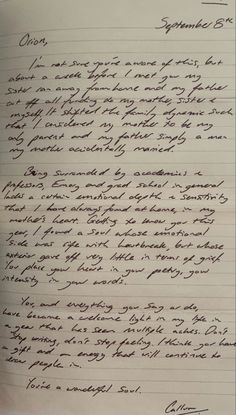 September 8th
Orion,
I'm not sure you're aware of this, but
about a week before I met you my
sister ran away from home and my father
cut off all funding to my mother, sister &
myself. It shifted the family dynamic such
that I considered my mother to be my
only parent and my father simply a man
my mother accidentally married.
Being surrounded by academics &
professors, Emory and grad school in general
lacks a certain emotional depth & sensitivity
that I have always found at home, in my
mother's heart. Getting to know you this
year, I found a soul whose emotional
side was rife with heartbreak, but whose
exterior gave off very little in terms of grief.
You place your heart in your poetry, your
intensity in your words.
You, and everything you say or do,
have become a welcome light in my life in
a year that has seen multiple ashes. Don't
stop writing, don't stop feeling. I think you have
a gift and an energy that will continue to
draw people in.
You're a wonderful soul.
Callum